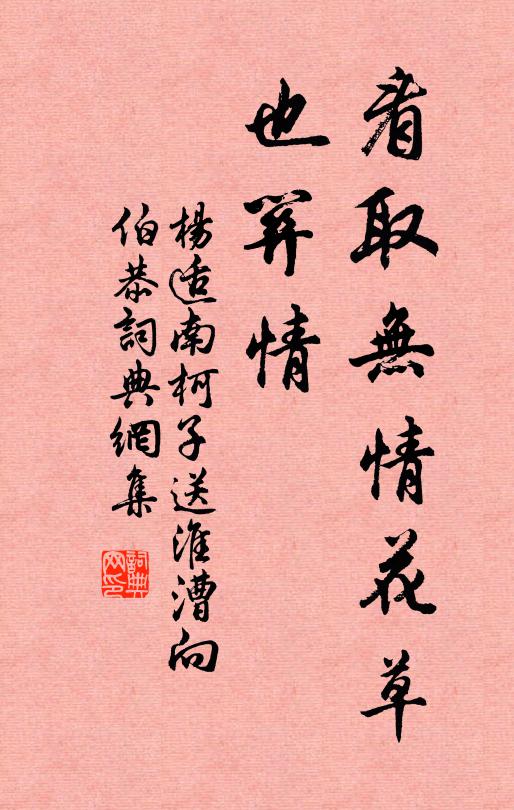 看取無情花草
也関情
楊适南柯子送淮漕向
伯恭詞典網集
詞典網印